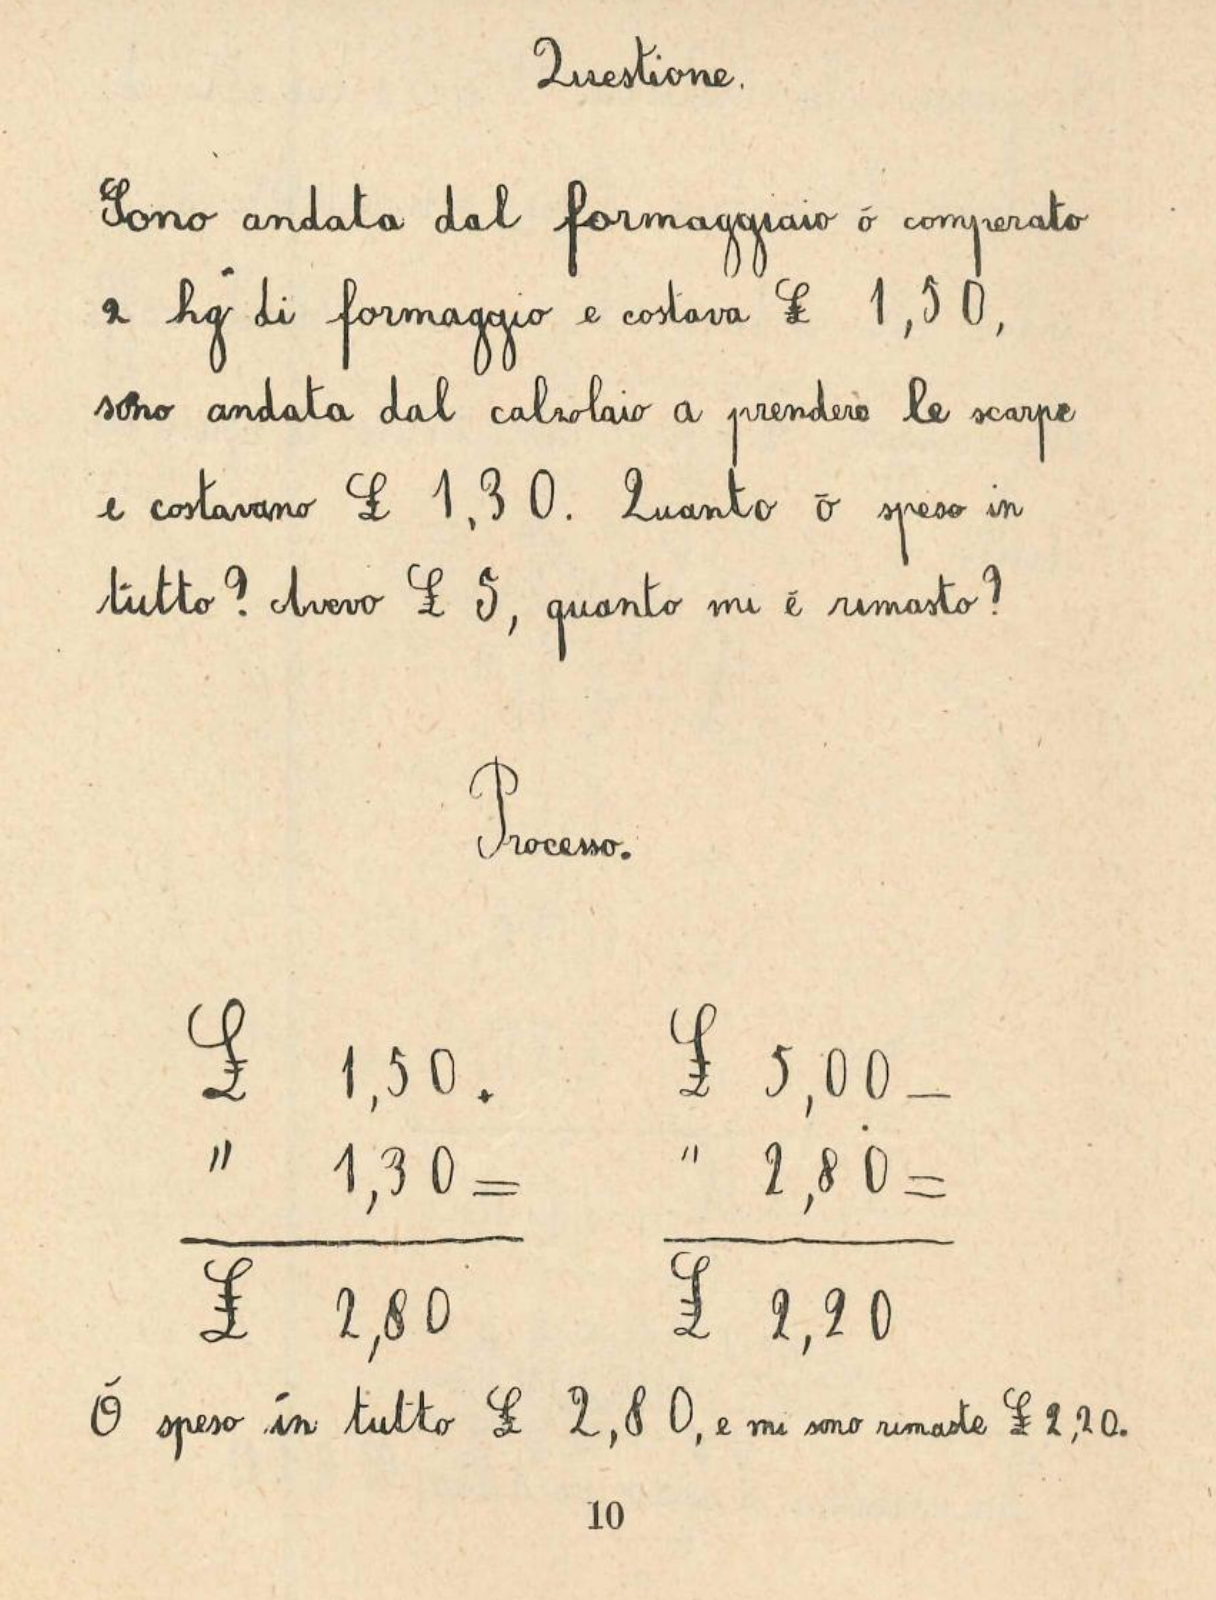 Questione.
Sono andata dal formaggiaio ō comperato
2 hg di formaggio e costava £ 1,50,
sono andata dal calzolaio a prendere le scarpe
e costavano £ 1,30. Quanto ō speso in
tutto? Avevo £ 5, quanto mi ē rimasto?
Processo.
£ 1,50. £ 5,00–
" 1,30= " 2,80=
£ 2,80 £ 2,20
Ō speso in tutto £ 2,80, e mi sono rimaste £ 2,20.
10